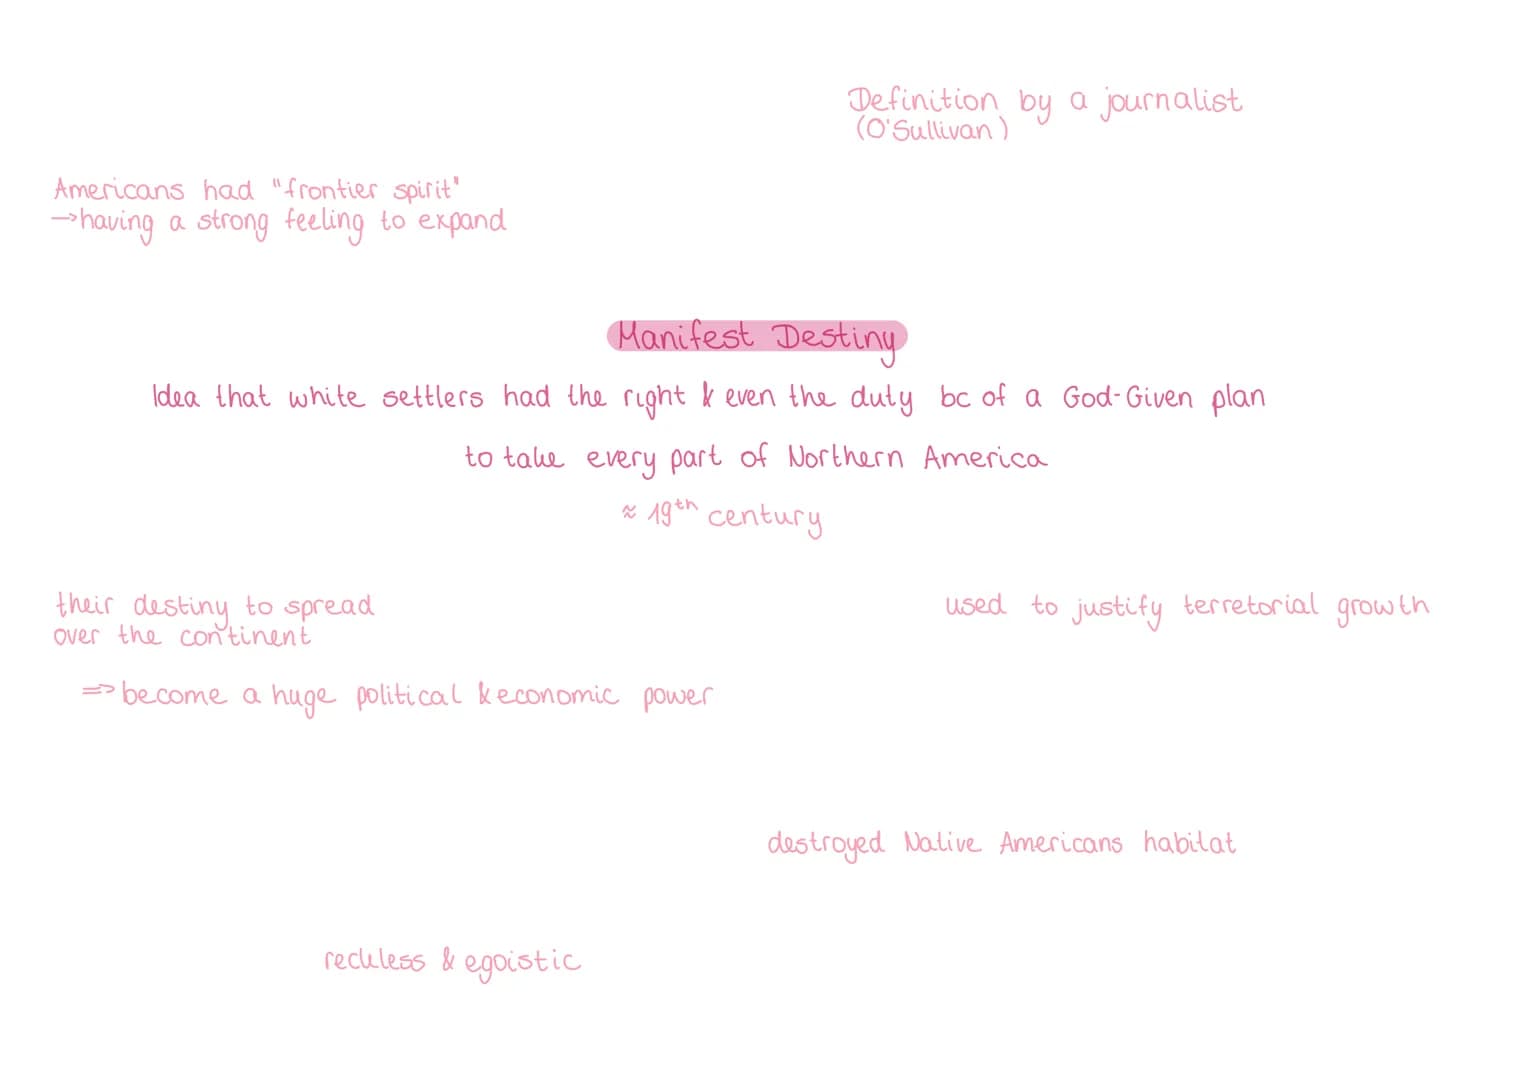 Definition by a journalist
(O'Sullivan)
Americans had "frontier spirit"
→having a strong feeling to expand
Manifest Destiny
Idea that white settlers had the right & even the duty bc of a God-Given plan
to take every part of Northern America
≈ 19th century
their destiny to spread
over the continent
used to justify terretorial growth
=> become a huge political & economic power
destroyed Native Americans habitat
reckless & egoistic